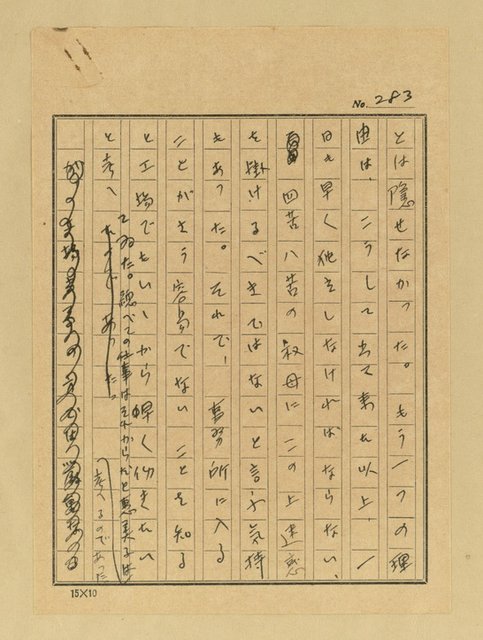 No. 283
とは隠せなかつた。もう一つの理
由は、こうして出て来た以上、一
日も早く独立しなければならない、
四苦八苦の叔母にこの上迷惑
を掛けるべきではないと言ふ気持
もあつた。それで、事務所に入る
ことがさう容易でないことを知る
と工場でもいいから早く働きたい
と考へ
てゐた。総べての仕事はそれからだと恵美子は
(考へるのであつた
15×10